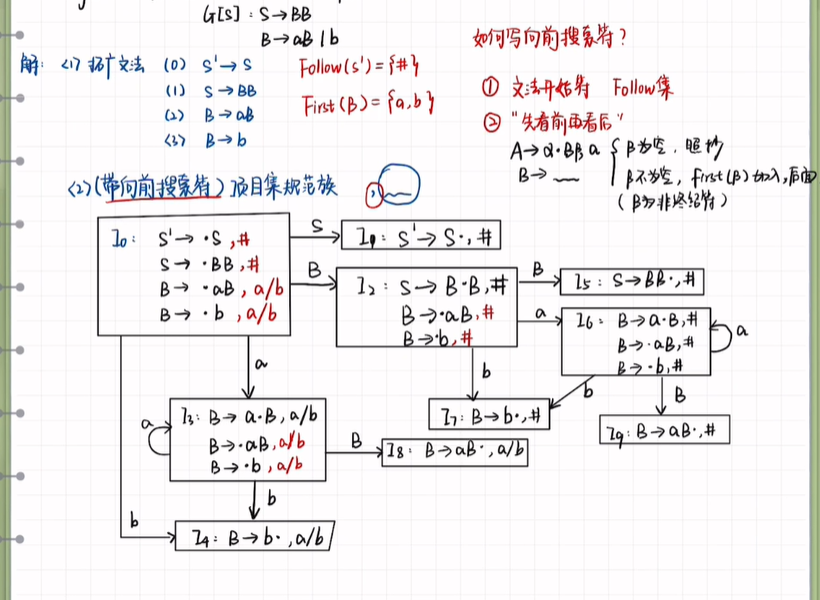 G[S]: S→BB
B→aB | b
如何写向前搜索符?
解: <1> 拓广文法 (0) S'→S
(1) S→BB
(2) B→aB
(3) B→b
Follow(S')={#}
First(B)={a,b}
① 文法开始符 Follow集
② "先看前再看后"
A→α·Bβ a { β为空, 照抄
B→ __ β不为空, first(β)加入,后面
(β为非终结符)
<2>(带向前搜索符)项目集规范族
I0: S'→·S,#
S→·BB,#
B→·aB, a/b
B→·b, a/b
S
I1: S'→S·,#
B
I2: S→B·B,#
B→·aB,#
B→·b,#
B
I5: S→BB·,#
a
I6: B→a·B,#
B→·aB,#
B→·b,#
a
b
b
B
I7: B→b·,#
I9: B→aB·,#
a
a
I3: B→a·B, a/b
B→·aB, a/b
B→·b, a/b
B
I8: B→aB·, a/b
b
b
I4: B→b·, a/b